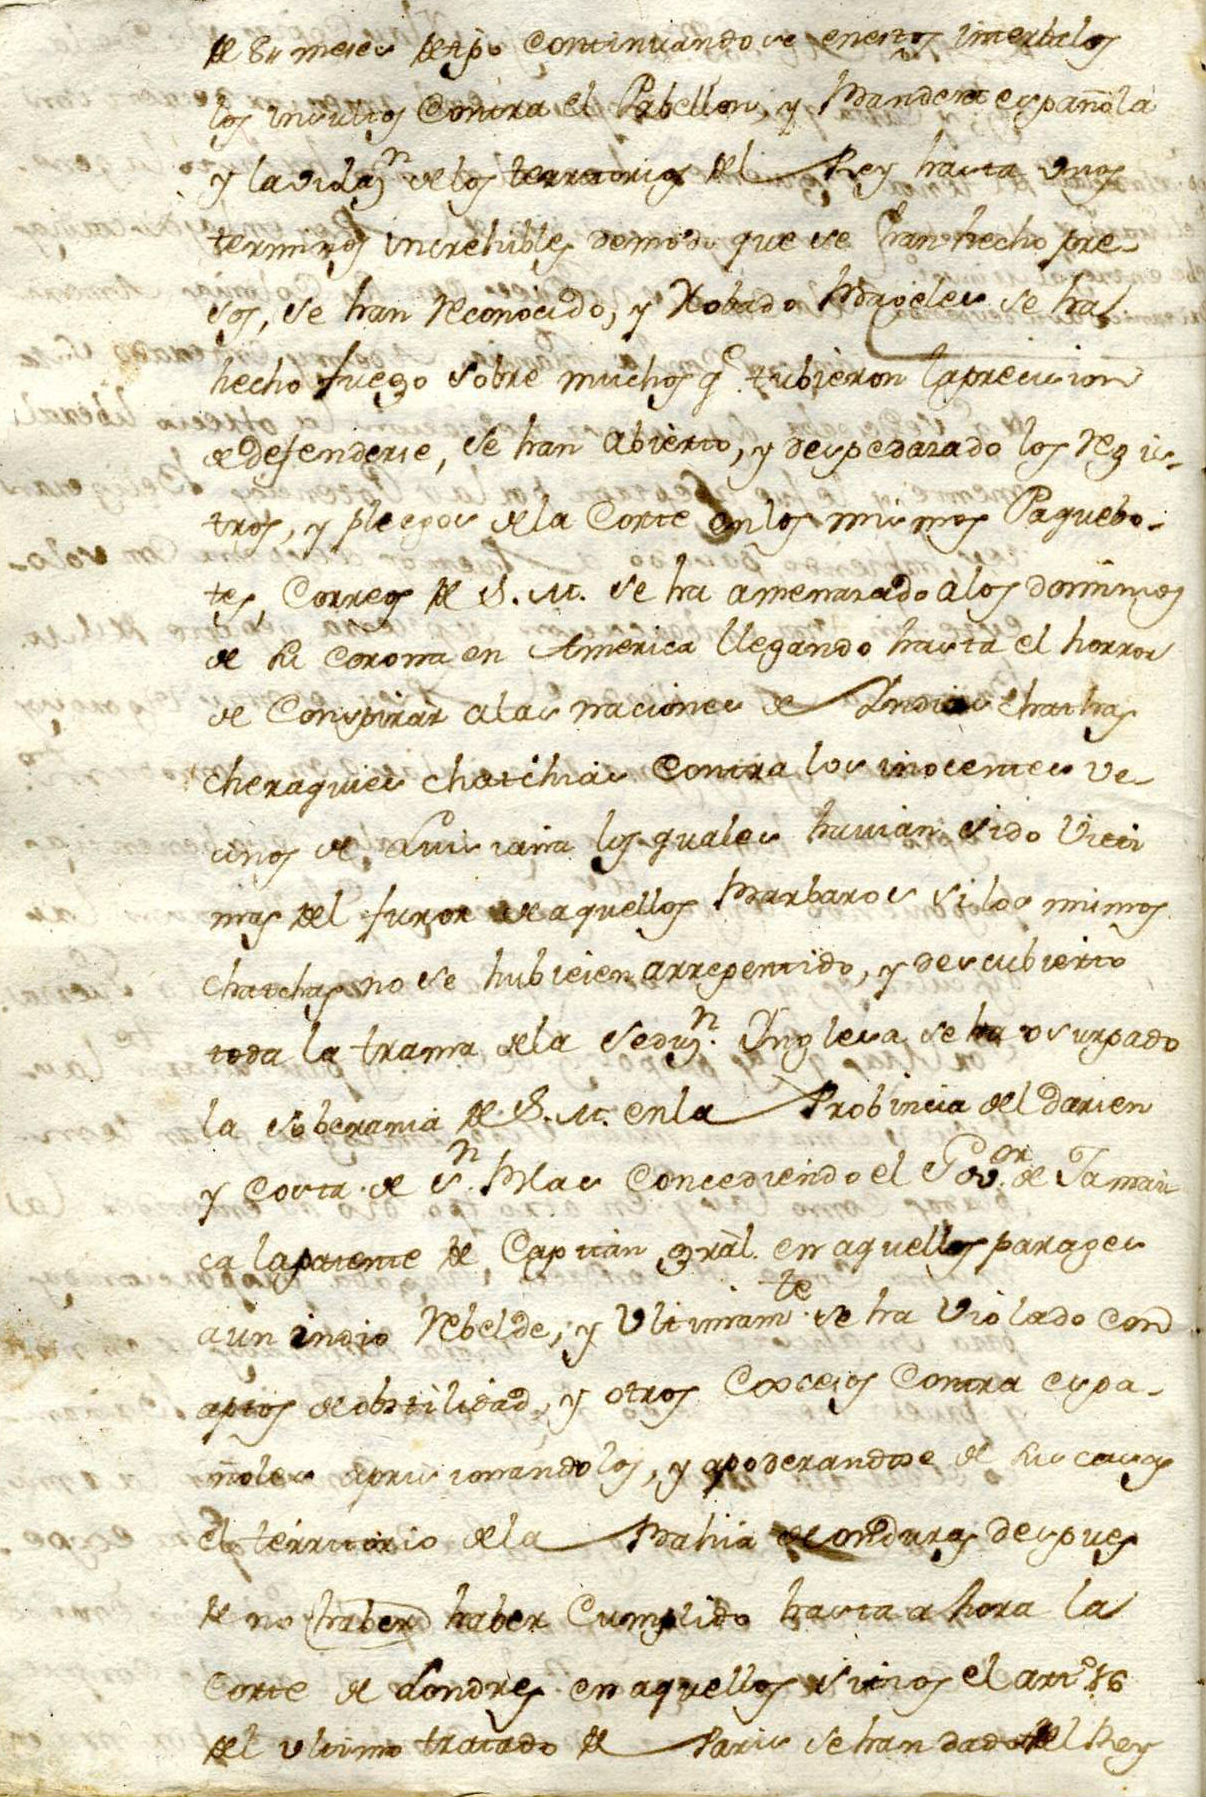 de 8 meses de tpo continuandose enestos interbalos
los insultos contra el Pabellon, y Bandera española
y la violaz.n de los territorios del Rey hasta unos
terminos increhibles demodo que se han hecho pre-
sos, se han reconocido, y Robado Bageles se ha
hecho fuego sobre muchos q.e tubieron la precision
de defenderse, se han abierto, y despedazado los regis-
tros, y pliegos de la Corte en los mismos Paquebo-
tes, Correos de S. M. se ha amenazado a los dominios
de su corona en America llegando hasta el horror
de Conspirar a las naciones de Indias chathas
cheraquies chatchias contra los inocentes ve-
cinos de Luisiana los quales huvian sido Victi
mas del furor de aquellos Barbaros si los mimos
chatchas no se hubiesen arrepentido, y descubierto
toda la trama de la Seduz.n Inglesa se ha usurpado
la soberania de S. M. en la Probincia del darien
y Costa de S.n Blas Concediendo el Gov.or de Jamai
ca la patente de Capitan gràl. en aquellos parages
a un indio rebelde, y Ultimam.te se ha violado con
aptos de obstilidad, y otros Excesos contra espa-
ñoles aprisionandolos, y apoderandose de sus casas
el territorio de la Bahia de onduras despues
de no haber haber Cumplido hasta ahora la
Corte de Londres en aquellos sitios el art.o 16
del ultimo tratado de Paris se han dado del Rey